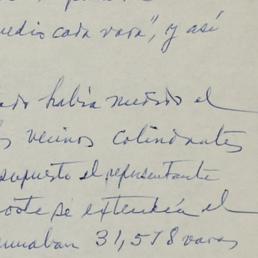 medio cada vara", y así
había medido el
vecinos colindantes
supuesto el representante
se extendía el
31,578 varas